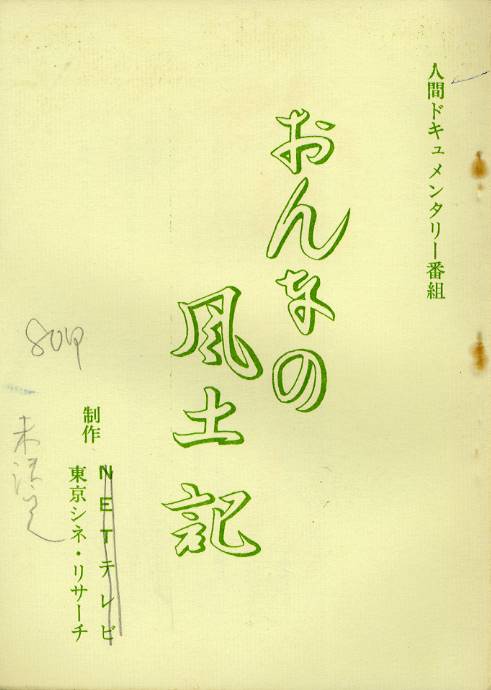 人間ドキュメンタリー番組
おんなの
風土記
制作
NETテレビ
東京シネ・リサーチ